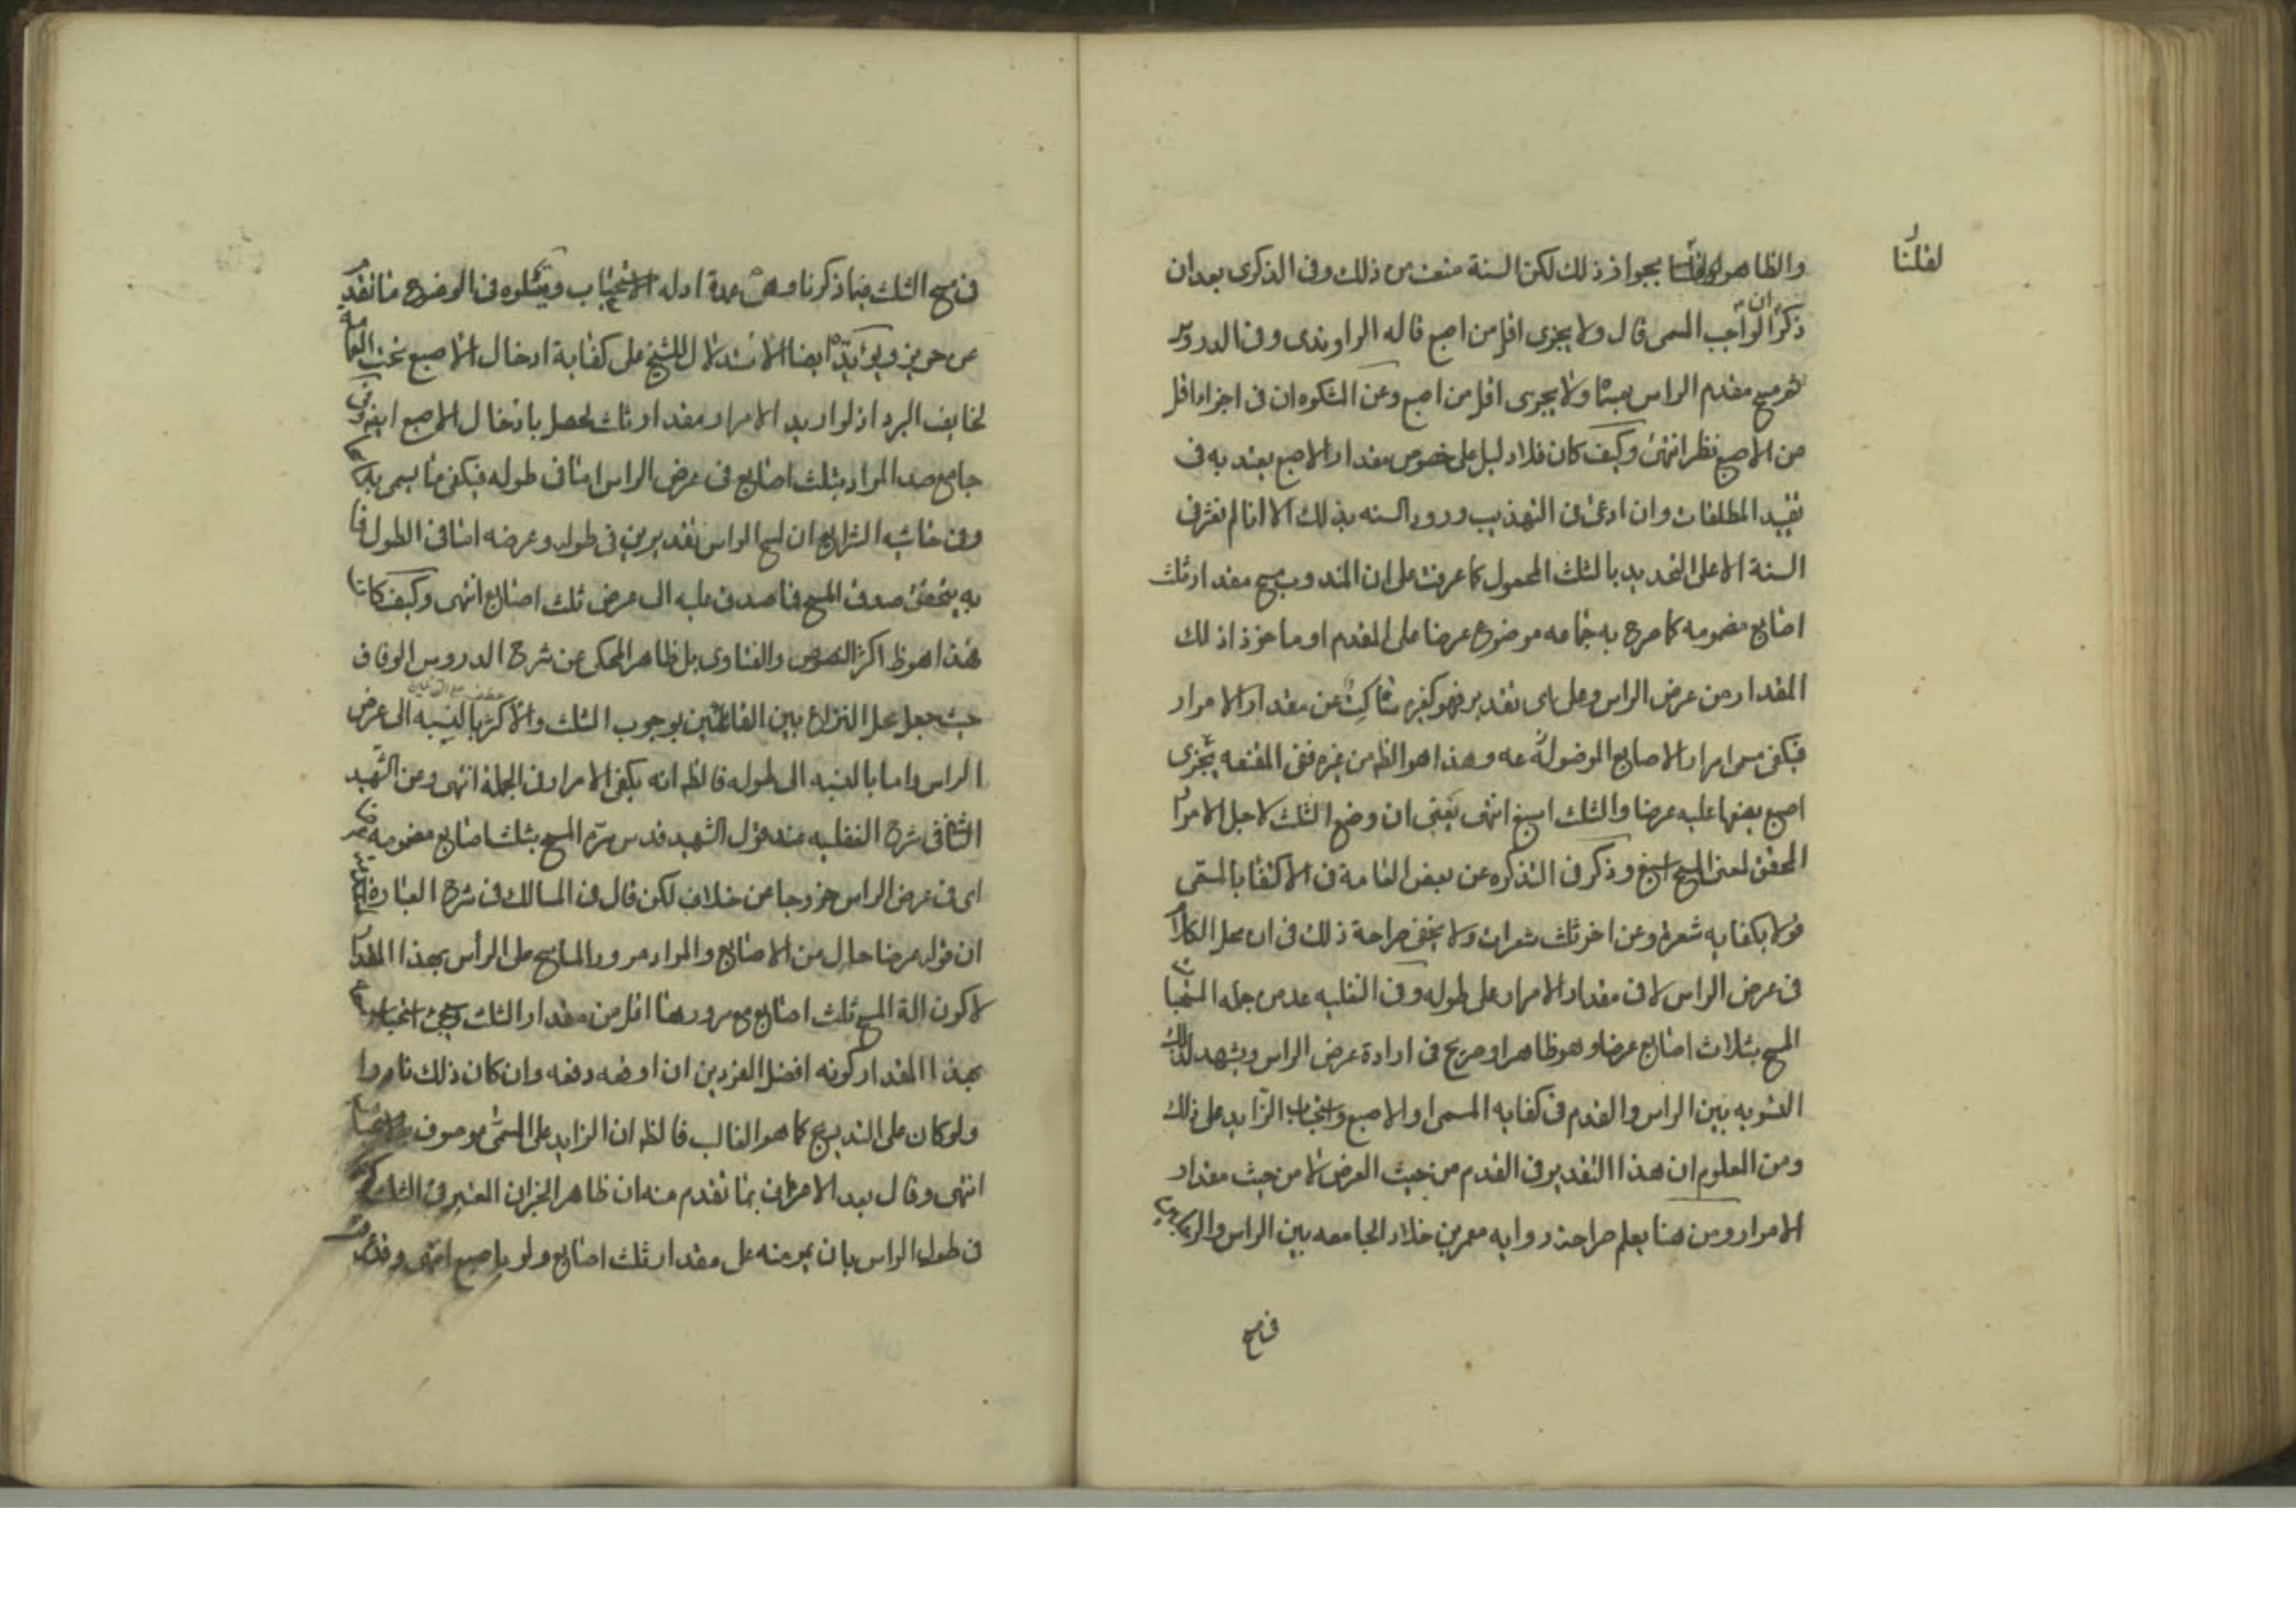 لقلنا
والظاهر بجواز ذلك لكن السنة منعت من ذلك وفى الذكرى بعد ان
ذكر ان الواجب المسمى قال ولا يجزى اقل من اصبع قاله الراوندى وفى الدروس
ثم مسح مقدم الراس بمسماه ولا يجزى اقل من اصبع وعن التذكره ان فى اجزاء اقل
من الاصبع نظر انتهى وكيف كان فلا دليل على خصوص مقدار الاصبع يعتد به فى
تقييد المطلقات وان ادعى فى التهذيب ورود السنه بذلك الا انا لم نعثر فى
السنة الا على التحديد بالثلث المحمول كما عرفت على ان المندوب مسح مقدار ثلث
اصابع مضمومه كما صرح به جماعه موضوع عرضا على المقدم او ماخوذ اذ لك
المقدار من عرض الراس وعلى اى تقدير فهو كغيره ساكت عن مقدار الامرار
فيكفى مسمى امرار الاصابع الموضولة عه وهذا هو الظ من غيره ففى المقنعه يجزى
اصبع يضعها عليه عرضا والثلث اسبغ انتهى يعنى ان وضع الثلث لاجل الامرار
المحقق لمعنى المسح اسبغ وذكر فى التذكره عن بعض العامة فى الاكتفا بالمسمى
قولا بكفايه شعرة وعن اخر ثلث شعرات ولا يخفى صراحة ذلك فى ان محل الكلام
فى عرض الراس لا فى مقدار الامرار على طوله وفى النفليه عد من جمله المستحبات
المسح بثلاث اصابع عرضا وهو ظاهر او صريح فى ارادة عرض الراس ويشهد لذلك
التسويه بين الراس والقدم فى كفايه المسمى او الاصبع واستحباب الزايد على ذلك
ومن المعلوم ان هذا التقدير فى القدم من حيث العرض لا من حيث مقدار
الامرار ومن هنا يعلم صراحة روايه معمر بن خلاد الجامعه بين الراس والرجلين
فى مسح
فى مسح الثلث فيما ذكرنا وهى عمدة ادله الاستحباب ويتلوه فى الوضوح ما تقدم
عن حريز ويؤيده ايضا الاستدلال للشيخ على كفاية ادخال الاصبع تحت العمامة
لخايف البرد اذ لو اريد الامرار مقدار ثلث لحصل بادخال الاصبع ايضا وفى
جامع صد المراد بثلث اصابع فى عرض الراس اما فى طوله فيكفى ما يسمى به ماسحا
وفى حاشيه الشرايع ان لمسح الراس تقديرين فى طوله وعرضه اما فى الطول فما
به يتحقق صدق المسح فاصدق عليه الى عرض ثلث اصابع انتهى وكيف كان
فهذا هو ظ اكثر النصوص والفتاوى بل ظاهر المحكى عن شرح الدروس الوفاق
حيث جعل محل النزاع بين القائلين بوجوب الثلث والاكثر بالنسبه الى عرض
الراس واما بالنسبه الى طوله فالظ انه يكفى الامرار فى الجملة انتهى وعن الشهيد
الثانى فى شرح النفليه عند قول الشهيد قدس سره المسح بثلث اصابع مضمومه
اى فى عرض الراس خروجا عن خلاف لكن قال فى المسالك فى شرح العبارة
ان قوله عرضا حال من الاصابع والمراد مرور الماسح على الرأس بهذا المقدار
لا كون الة المسح ثلث اصابع مع مرورها اقل من مقدار الثلث
بهذا المقدار كونه افضل الفردين ان اوقعه دفعه وان كان ذلك نادرا
ولو كان على التدريج كما هو الغالب فالظ ان الزايد على المسمى موصوف بالاستحباب
انتهى وقال بعد الاعتراف بما تقدم منه ان ظاهر الخبر ان المعتبر فى الثلث كونه
فى طول الراس بان يمر منه على مقدار ثلث اصابع ولو باصبع انتهى